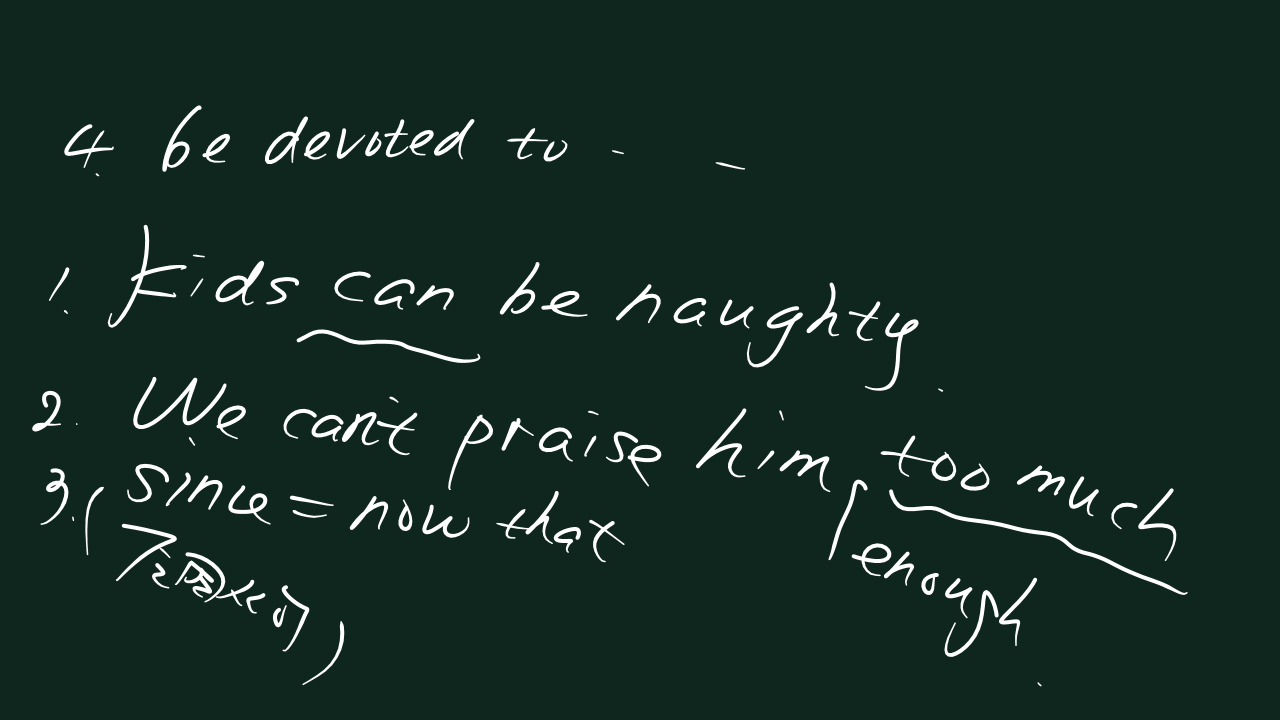 4. be devoted to - -
1. Kids can be naughty.
2. We can't praise him too much
enough.
3. (since = now that
)